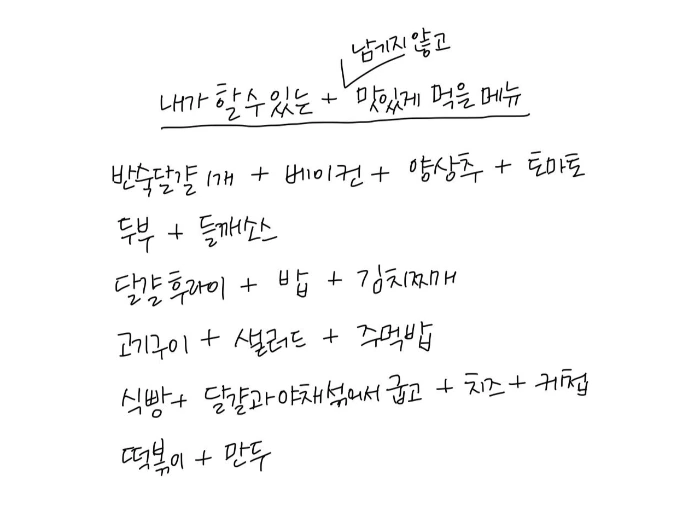 남기지 않고
내가 할 수 있는 + 맛있게 먹을 메뉴
반숙달걀 1개 + 베이컨 + 양상추 + 토마토
두부 + 들깨소스
달걀후라이 + 밥 + 김치찌개
고기구이 + 샐러드 + 주먹밥
식빵 + 달걀과 야채 섞어서 굽고 + 치즈 + 케첩
떡볶이 + 만두